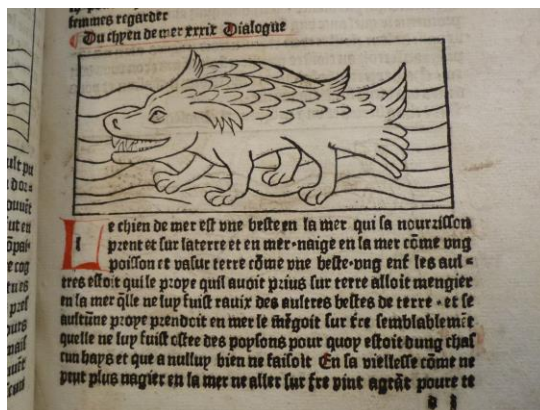 femmes regarder
Du chyen de mer xxxix Dialogue
Le chien de mer est vne beste en la mer qui sa nourrisson
prent et sur laterre et en mer·naige en la mer cōme vng
poisson et vasur terre cōme vne beste·vng enf les aul=
tres estoit qui le prope quil auoit prius sur terre alloit mengier
en la mer q̄lle ne luy fuist rauix des aultres bestes de terre·et se
aultūne proye prendoit en mer le mēgoit sur t̄re semblablemēt
quelle ne luy fuist ostee des poysons pour quoy estoit dung chas
cun hays et que a nulluy bien ne faisoit En sa viellesse cōme ne
peut plus nagier en la mer ne aller sur t̄re vint agrāt poure te